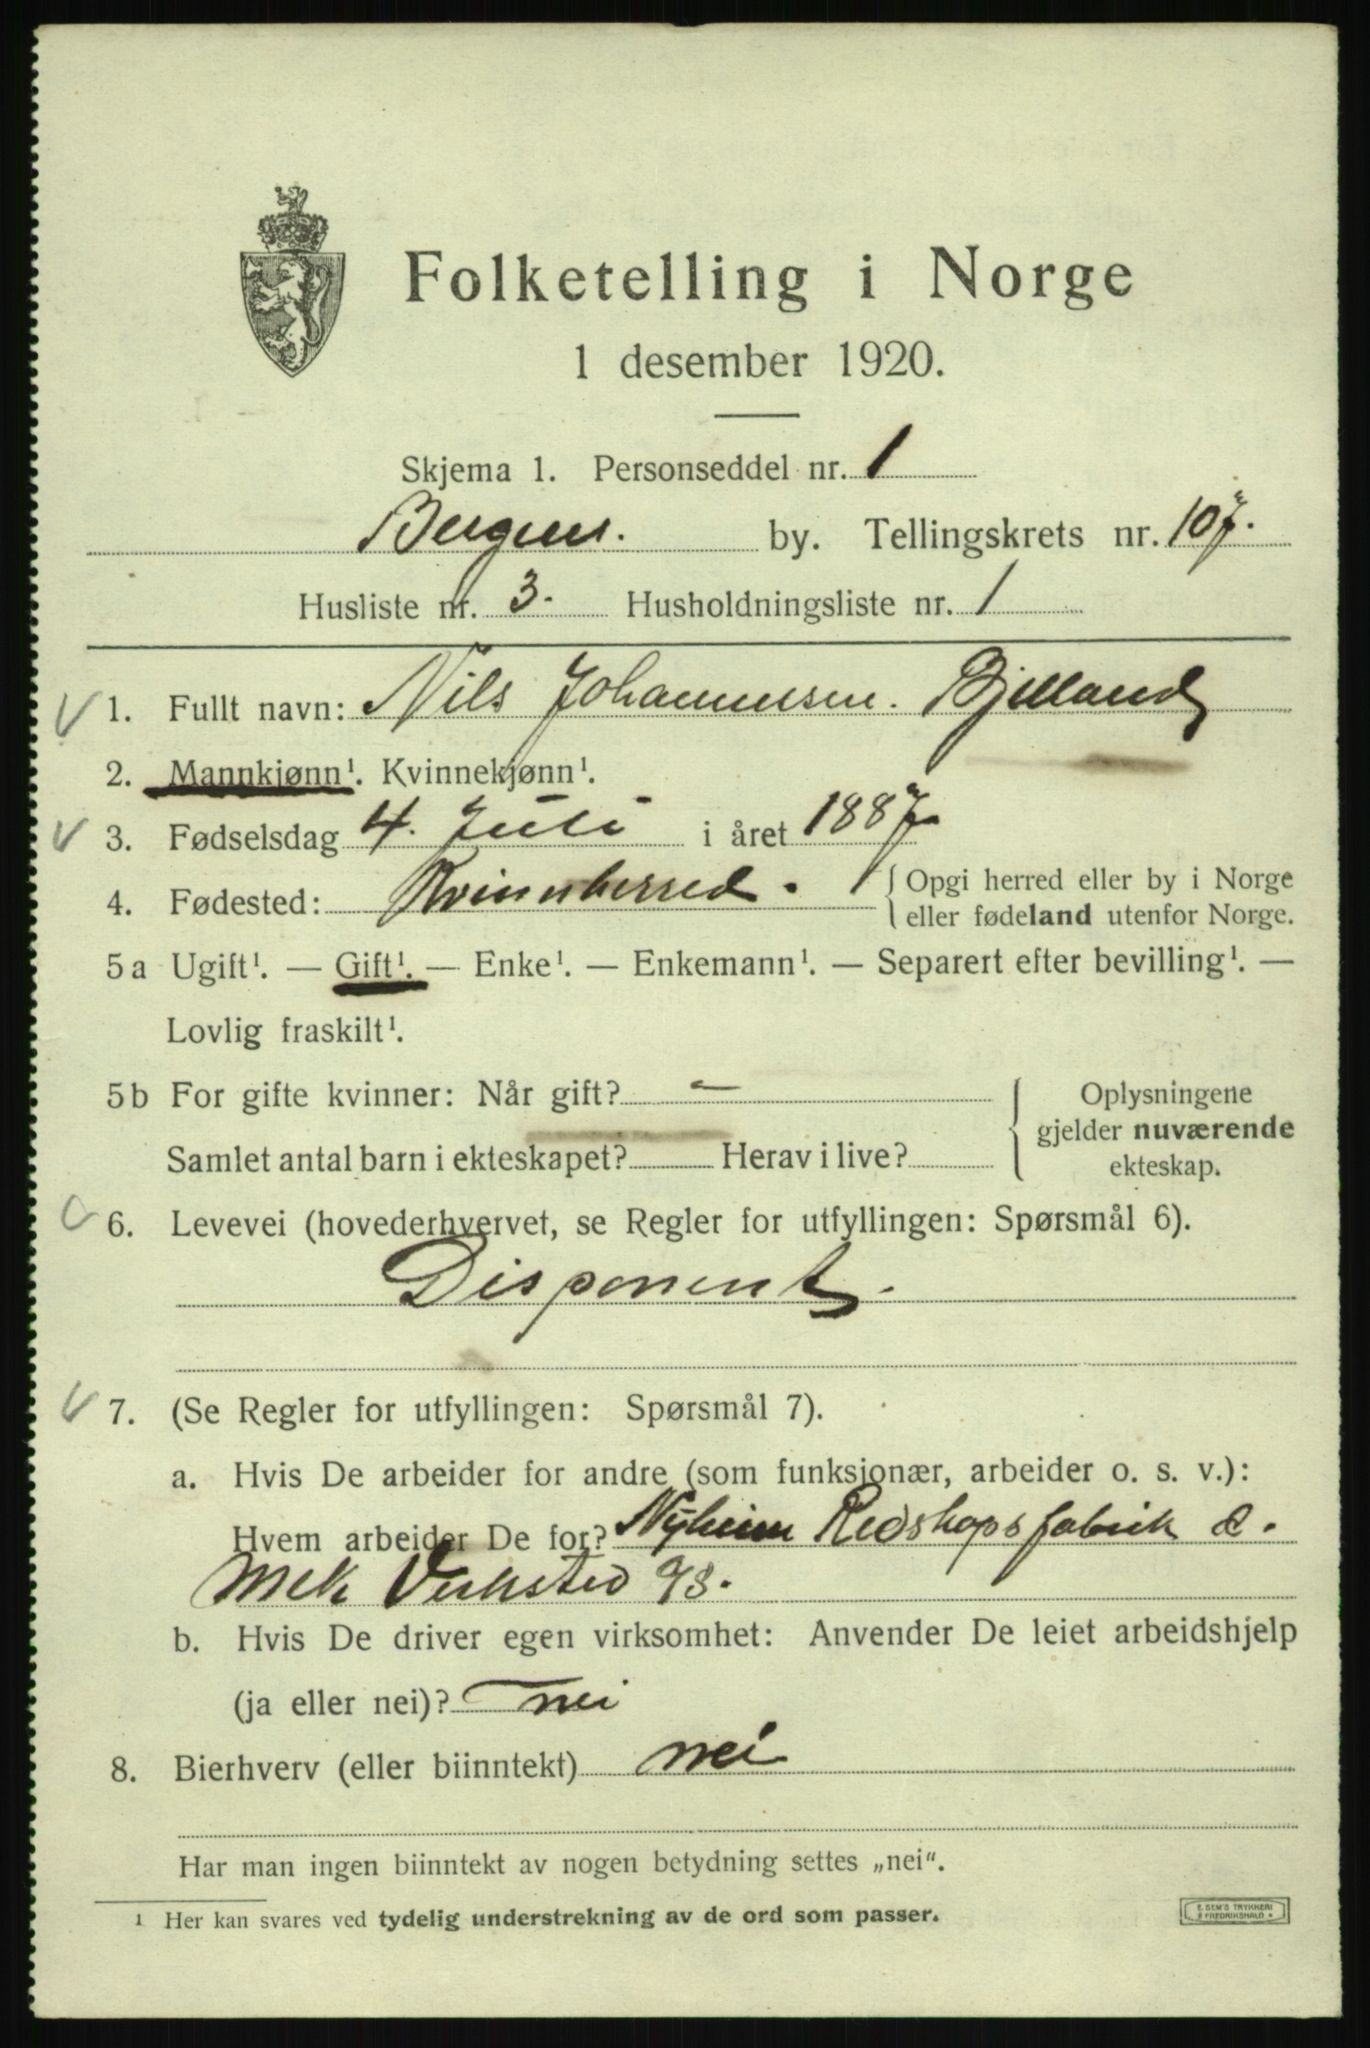 Folketelling i Norge
1 desember 1920.
Skjema 1. Personseddel nr. 1
Bergens. by. Tellingskrets nr. 107.
Husliste nr. 3. Husholdningsliste nr. 1
1. Fullt navn: Nils Johannesen. Bjelland
2. Mannkjønn¹. Kvinnekjønn¹.
3. Fødselsdag 4. Juli i året 1887
4. Fødested: Kvinnherred. { Opgi herred eller by i Norge
eller fødeland utenfor Norge.
5a Ugift¹. — Gift¹. — Enke¹. — Enkemann¹. — Separert efter bevilling¹. —
Lovlig fraskilt¹.
5b For gifte kvinner: Når gift? — { Oplysningene
gjelder nuværende
ekteskap.
Samlet antal barn i ekteskapet? Herav i live?
6. Levevei (hovederhvervet, se Regler for utfyllingen: Spørsmål 6).
Disponent.
7. (Se Regler for utfyllingen: Spørsmål 7).
a. Hvis De arbeider for andre (som funksjonær, arbeider o. s. v.):
Hvem arbeider De for? Nyheim Redskapsfabrik &.
Mek Verksted
b. Hvis De driver egen virksomhet: Anvender De leiet arbeidshjelp
(ja eller nei)? nei
8. Bierhverv (eller biinntekt) nei
Har man ingen biinntekt av nogen betydning settes „nei“.
¹ Her kan svares ved tydelig understrekning av de ord som passer.
E. SEM'S TRYKKERI
FREDRIKSHALD